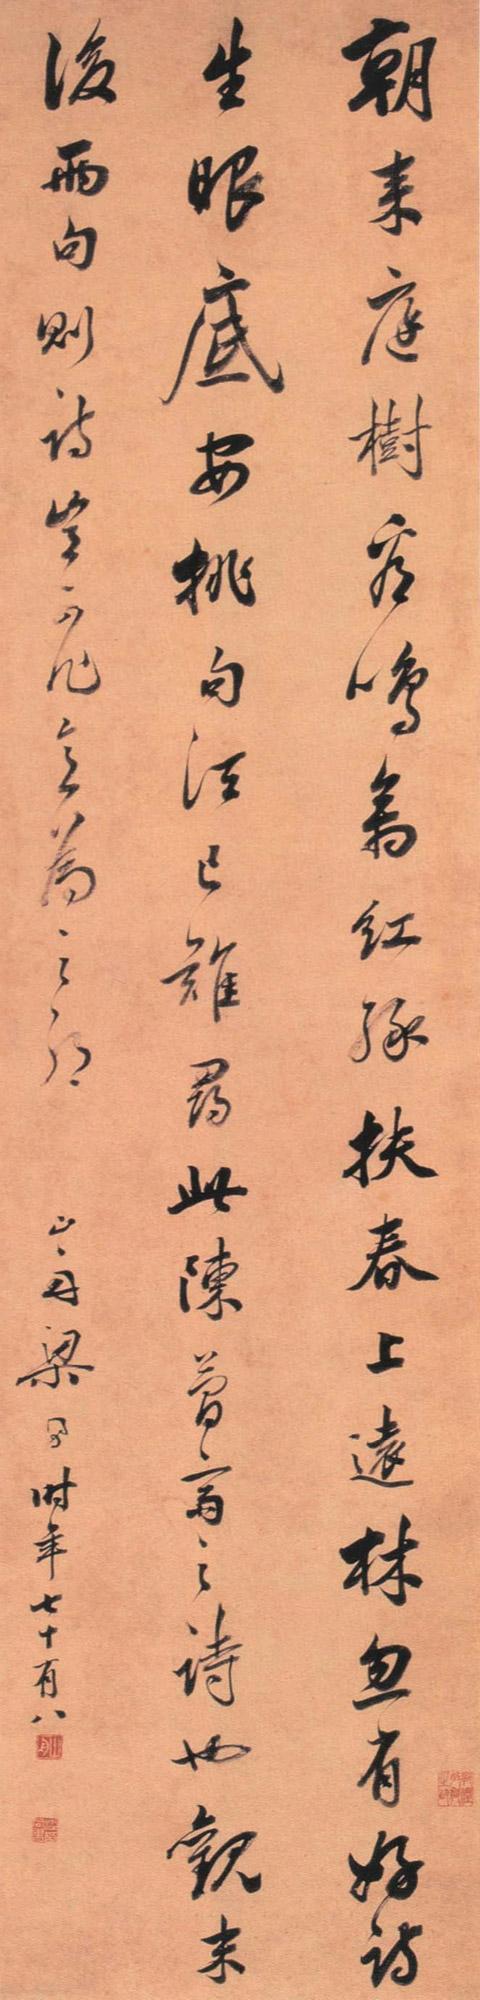 朝来庭樹有鳴禽紅綠扶春上遠林忽有好詩
生眼底安排句法已難尋此陳簡齋之詩也觀末
後兩句則詩豈可作意為之耶 山舟梁同書時年七十有八